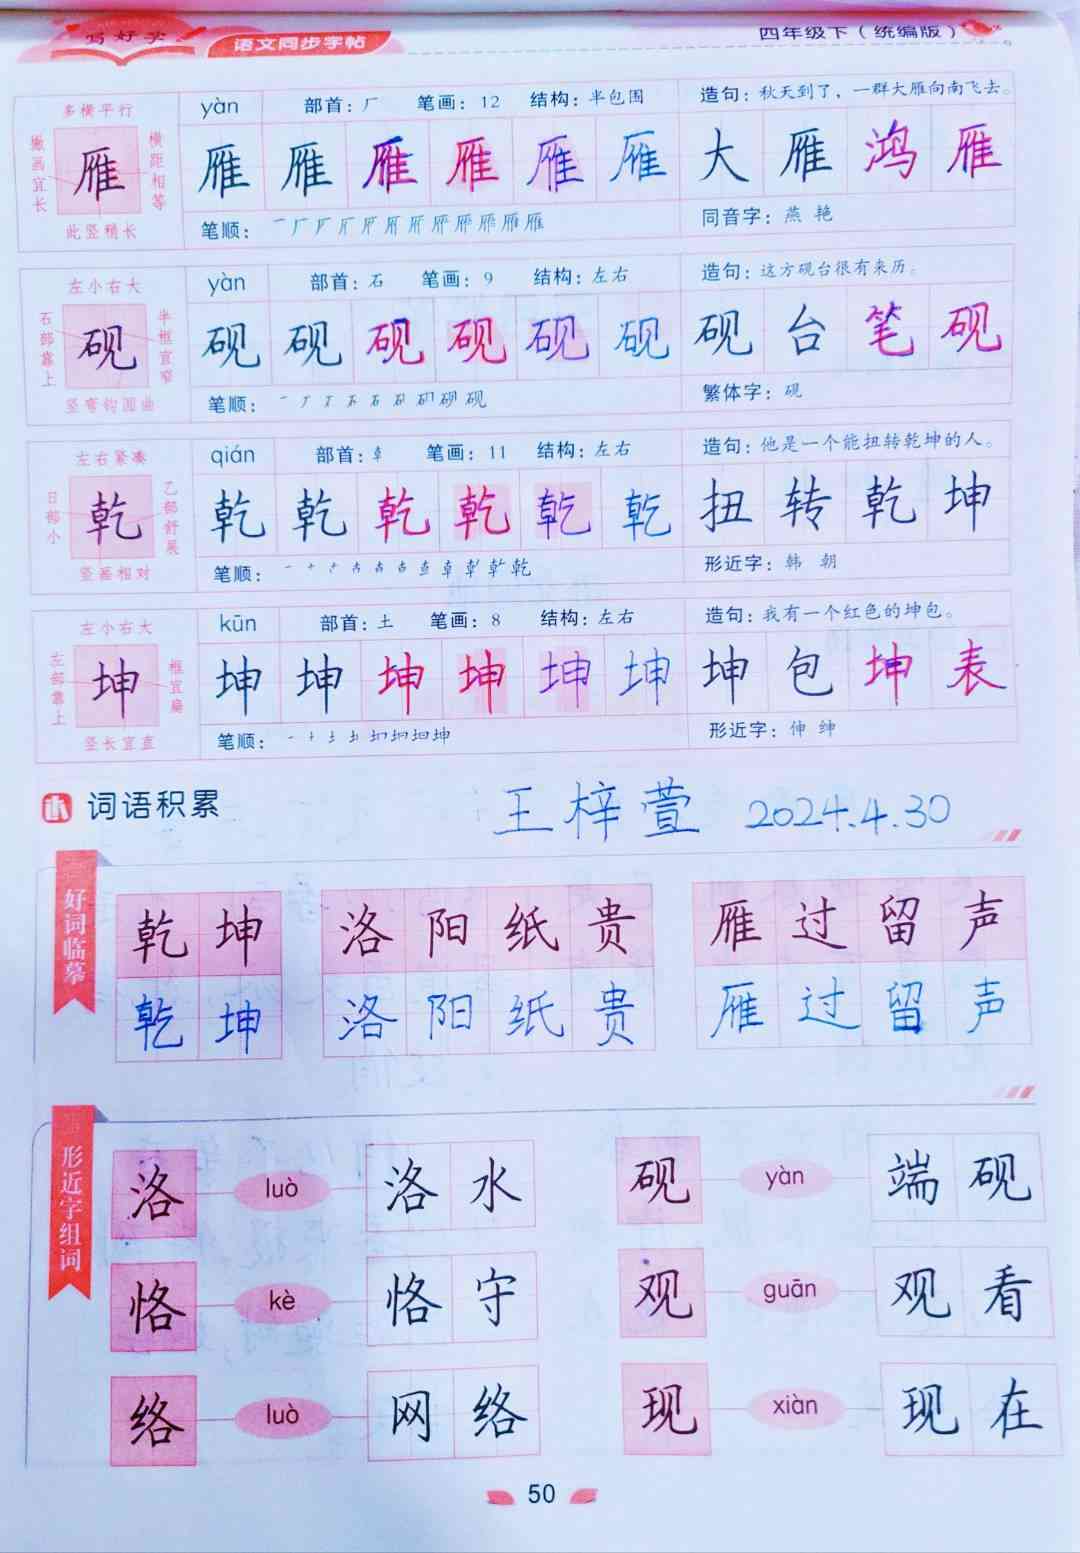 写好字
语文同步字帖
四年级下（统编版）
多横平行
撇画宜长
雁
横距相等
此竖稍长
yàn 部首：厂 笔画：12 结构：半包围 造句：秋天到了，一群大雁向南飞去。
雁 雁 雁 雁 雁 雁 大 雁 鸿 雁
笔顺： 同音字：燕 艳
左小右大
石部靠上
砚
半框宜窄
竖弯钩圆曲
yàn 部首：石 笔画：9 结构：左右 造句：这方砚台很有来历。
砚 砚 砚 砚 砚 砚 砚 台 笔 砚
笔顺： 繁体字：砚
左右紧凑
日部小
乾
乙部舒展
竖画相对
qián 部首：𠦝 笔画：11 结构：左右 造句：他是一个能扭转乾坤的人。
乾 乾 乾 乾 乾 乾 扭 转 乾 坤
笔顺： 形近字：韩 朝
左小右大
左部靠上
坤
框宜扁
竖长宜直
kūn 部首：土 笔画：8 结构：左右 造句：我有一个红色的坤包。
坤 坤 坤 坤 坤 坤 坤 包 坤 表
笔顺： 形近字：伸 绅
词语积累
王梓萱 2024.4.30
好词临摹
乾 坤 洛 阳 纸 贵 雁 过 留 声
乾 坤 洛 阳 纸 贵 雁 过 留 声
形近字组词
洛 luò 洛 水 砚 yàn 端 砚
恪 kè 恪 守 观 guān 观 看
络 luò 网 络 现 xiàn 现 在
50